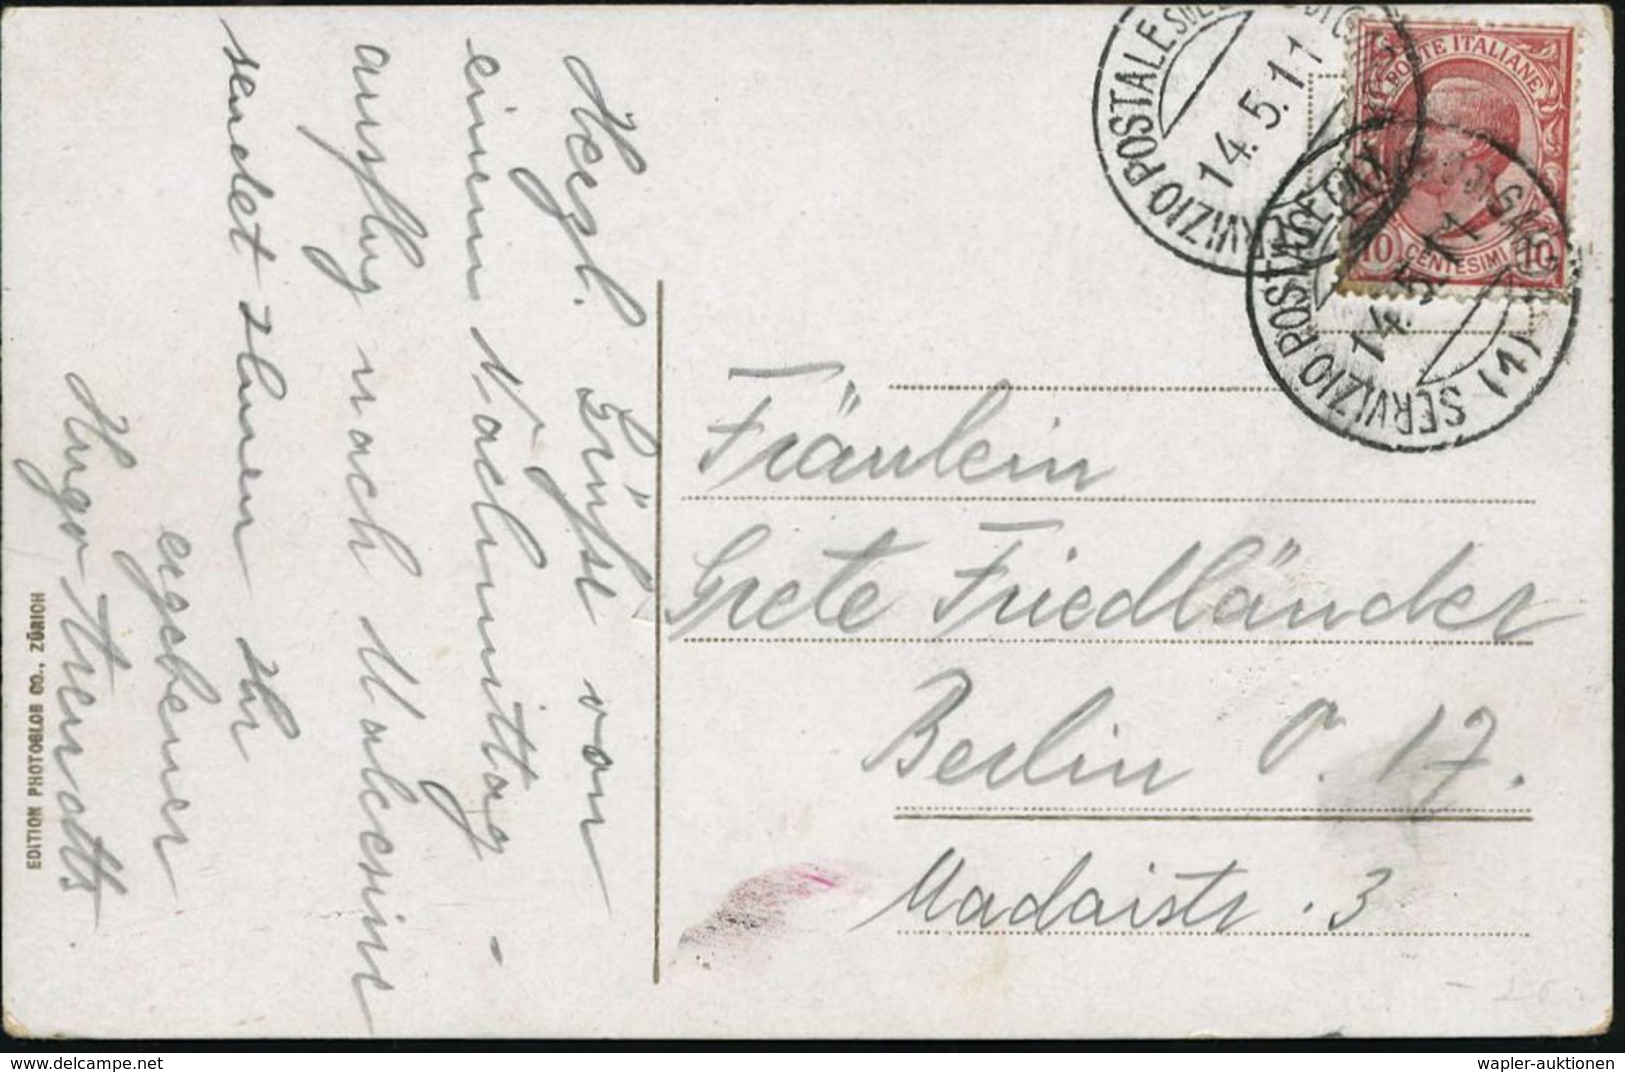 Herzl. Grüße von
einem Nachmittag-
ausflug nach Malcesine
sendet Ihnen Ihr
ergebener
Hugo
EDITION PHOTOGLOB CO., ZÜRICH
SERVIZIO POSTALE SUL
14.5.11
POSTE ITALIANE
10 CENTESIMI 10
SERVIZIO POSTALE
14.5.11
(1)
Fräulein
Grete Friedländer
Berlin O. 17.
Madaistr. 3
wapler-auktionen